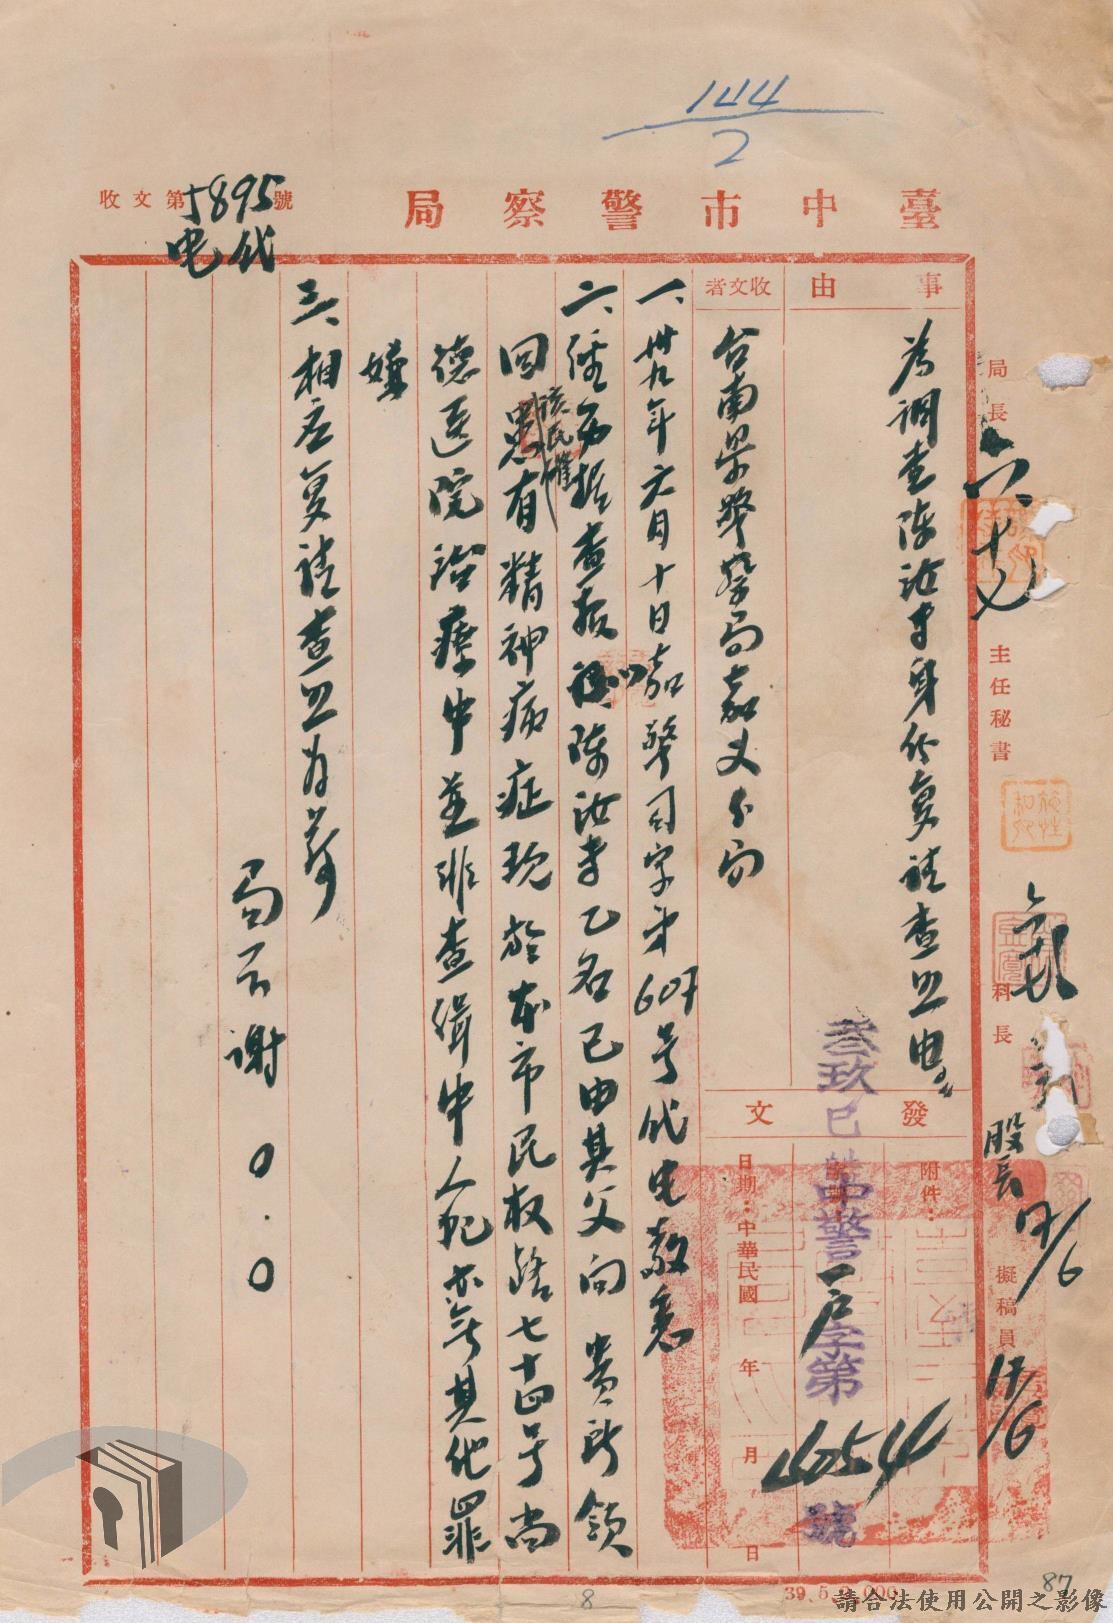 144
2
臺中市警察局
收文第5895號
代电
事由
為調查陳汝才身份复請查照由
收文者
台南县警察局嘉义分局
發文
附件：
日期：中華民國 年 月 日
叁玖巳
中警一户字第4054號
一、卅九年六月十日嘉警司字第607号代电敬悉
二、經飭据查报陳汝才乙名已由其父向 貴所領
回該民患有精神病症現於本市民权路七十四号尚
德医院治療中並非查緝中人犯亦無其他罪
嫌
三、相应复請查照为荷
局长 謝〇.〇
局長
六十七
主任秘書
科長
股長
17/6
擬稿員
17/6
39.5.
8
87
請合法使用公開之影像